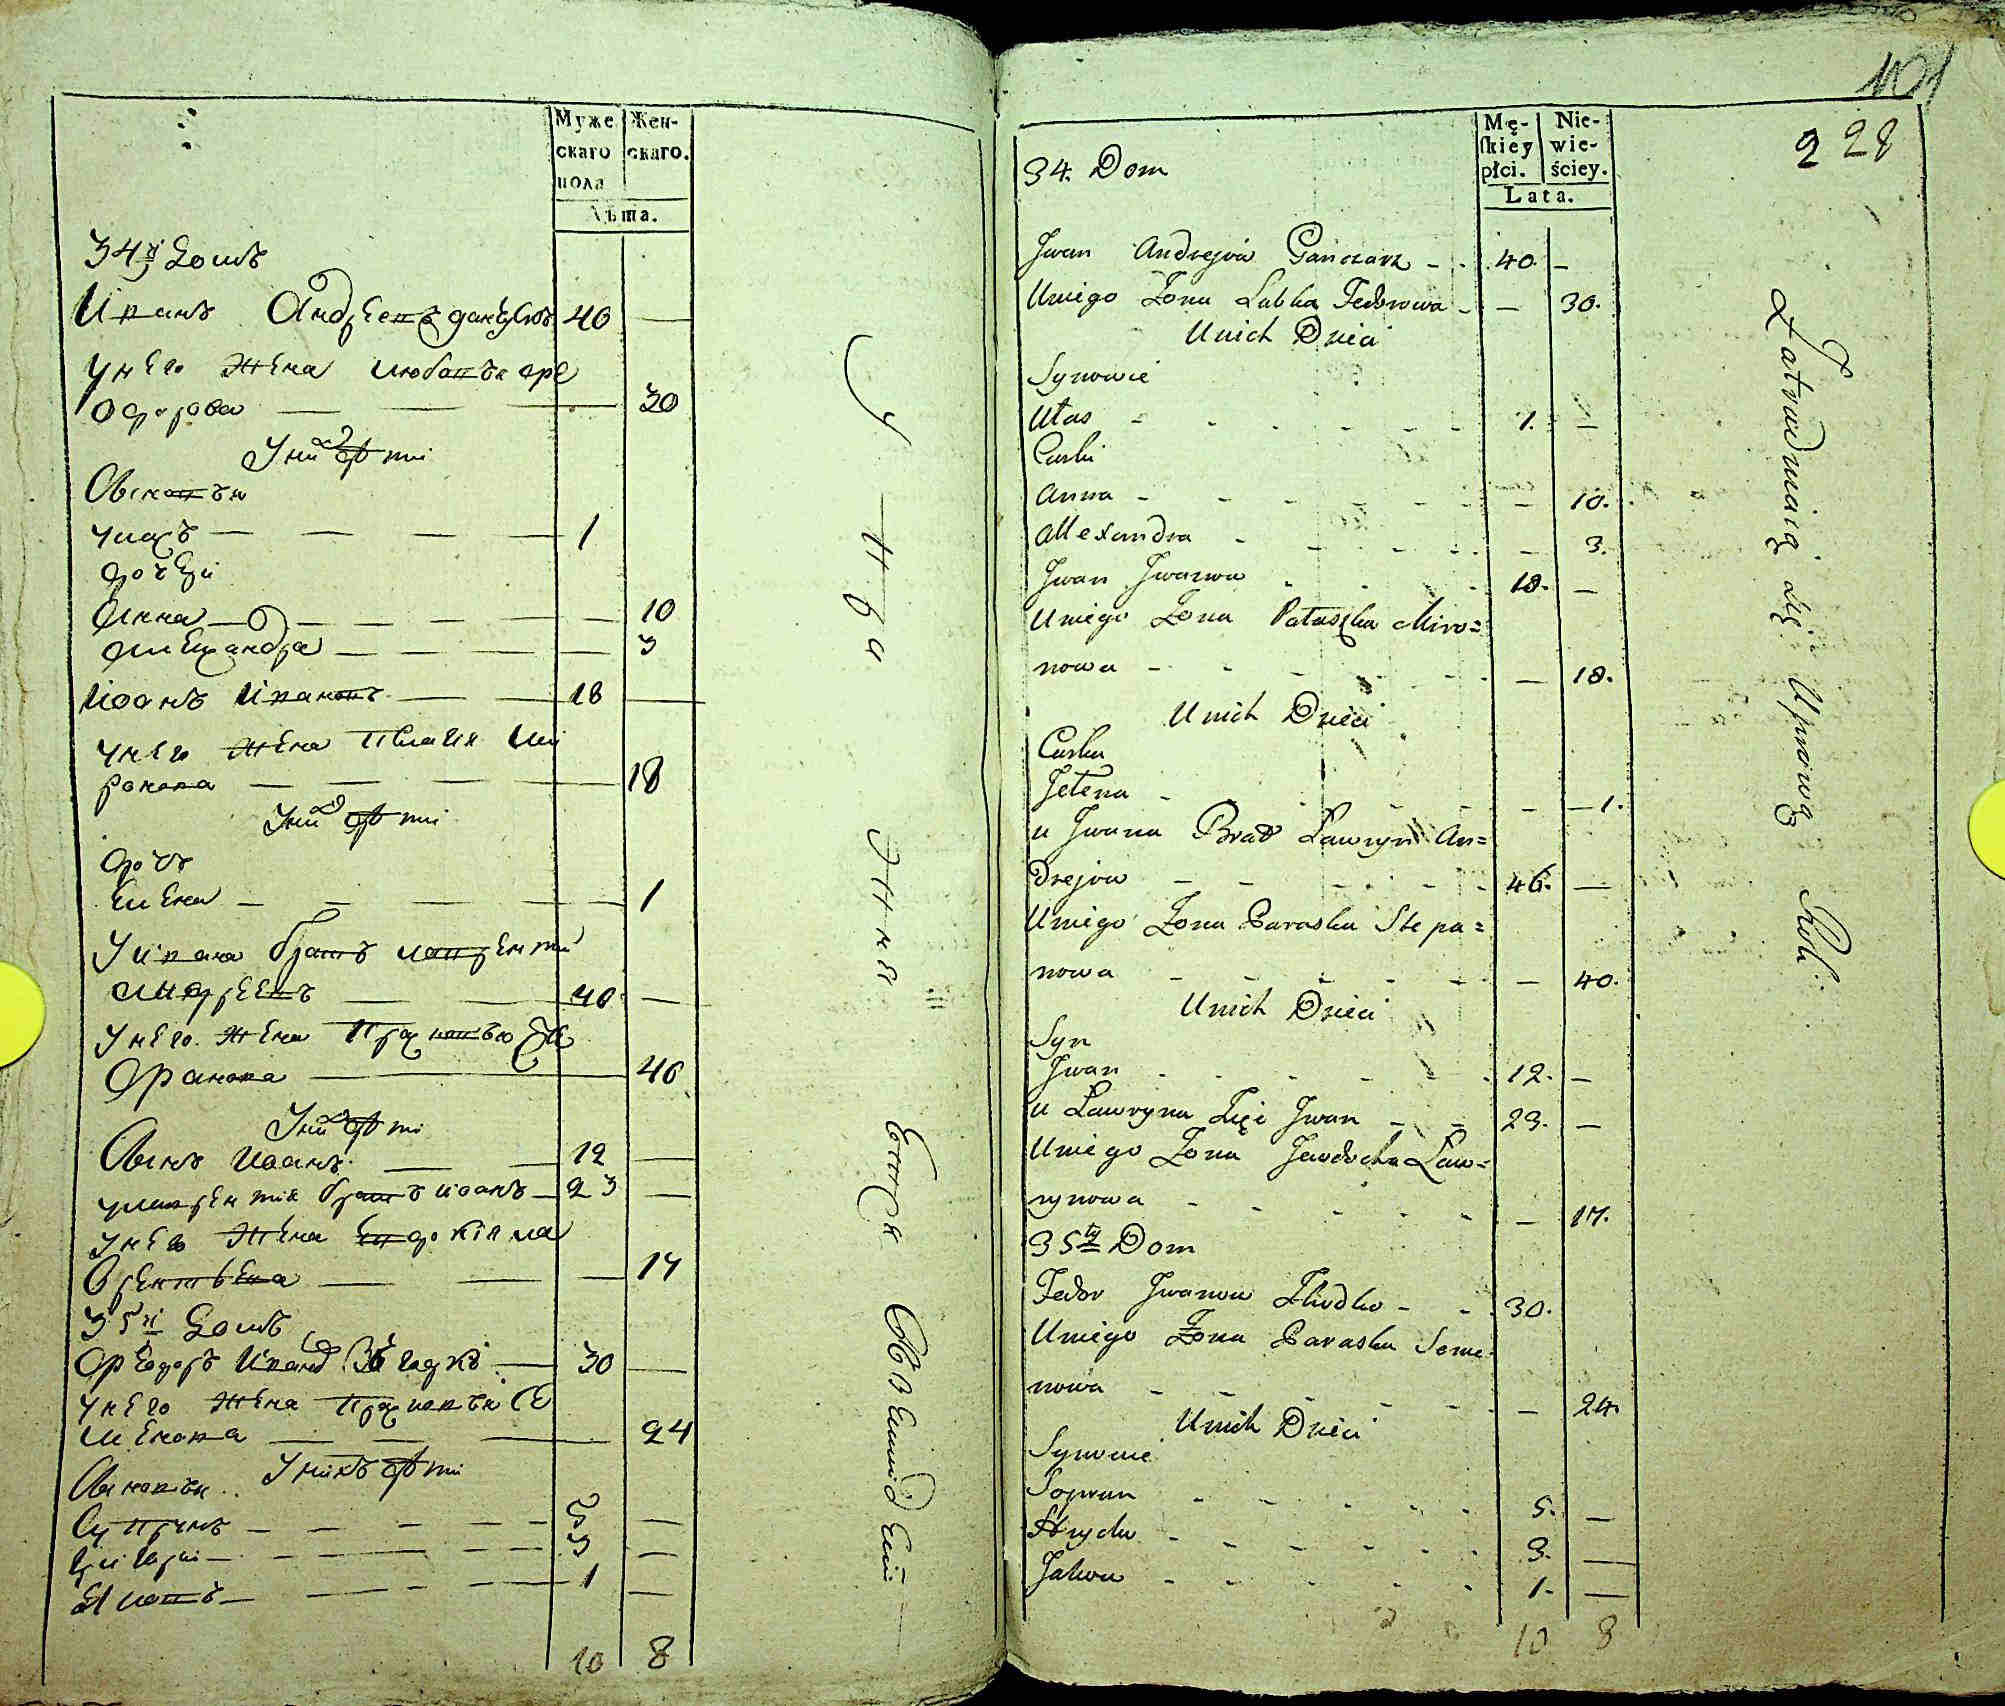 Муже
скаго
пола
Жен-
скаго.
Лѣта.
34й Домъ
Иванъ Андреевъ 40 —
У него жена Любовь Фе
одорова — — — 30
У них дѣти
Сыновья
Уласъ — — — — 1
дочери
Анна — — — — — 10
Александра — — — 3
Иванъ Ивановъ — — 18 —
У него жена Пелагия Ми
ронова — — — 18
У них дѣти
дочь
Елена — — — — 1
У Ивана братъ Лаврентий
Андреевъ — — 46 —
У него жена Прасковья Сте
фанова — 40
У них дѣти
Сынъ Иванъ — — 12 —
У Лаврентия Иванъ — 23 —
У него жена Евдокия Ла
врентьева — — — 17
35й Домъ
Феодоръ Ивановъ — 30 —
У него жена Прасковья Се
менова — — — 24
У нихъ дѣти
Сыновья
Супрунъ — — — — 5 —
Григорий — — — — 3 —
Яковъ — — — — 1 —
10 8
У
101
228
34. Dom
Mę-
skiey
płci.
Nie-
wie-
ściey.
Lata.
Jwan Andrejów Ganczarz - - 40. —
U niego Żona Lubka Fedorowa - — 30.
U nich Dzieci
Synowie
Ułas - - - - - 1. —
Curki
Anna - - - - - — 10.
Alexandra - - - - — 3.
Jwan Jwanow - - - 18. —
U niego Żona Pałaszka Miro=
nowa - - - - — 18.
U nich Dzieci
Curka
Jełena - - - - — 1.
u Jwana Brat Ławryn An=
drejow - - - - 46. —
U niego Żona Paraska Stepa=
nowa - - - - — 40.
U nich Dzieci
Syn
Jwan - - - - - 12. —
u Ławryna Zięć Jwan - - 23. —
U niego Żona Jewdocha Ław=
rynowa - - - - — 17.
35ty Dom
Fedor Jwanow - - 30.
U niego Żona Paraska Seme=
nowa - - - - — 24.
U nich Dzieci
Synowie
Soprun - - - - 5. —
Hryćko - - - - 3. —
Jakow - - - - 1. —
10 8
Zatrudniaią się Uprawą Roli.